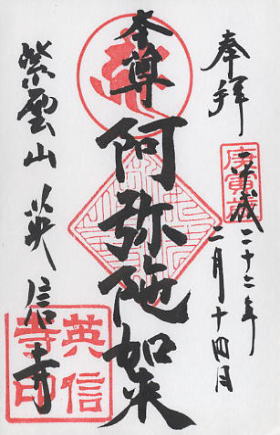 奉拝
平成二十二年
二月十四日
庚寅歳
本尊
阿弥陀如来
紫雲山 英信寺
英信寺印